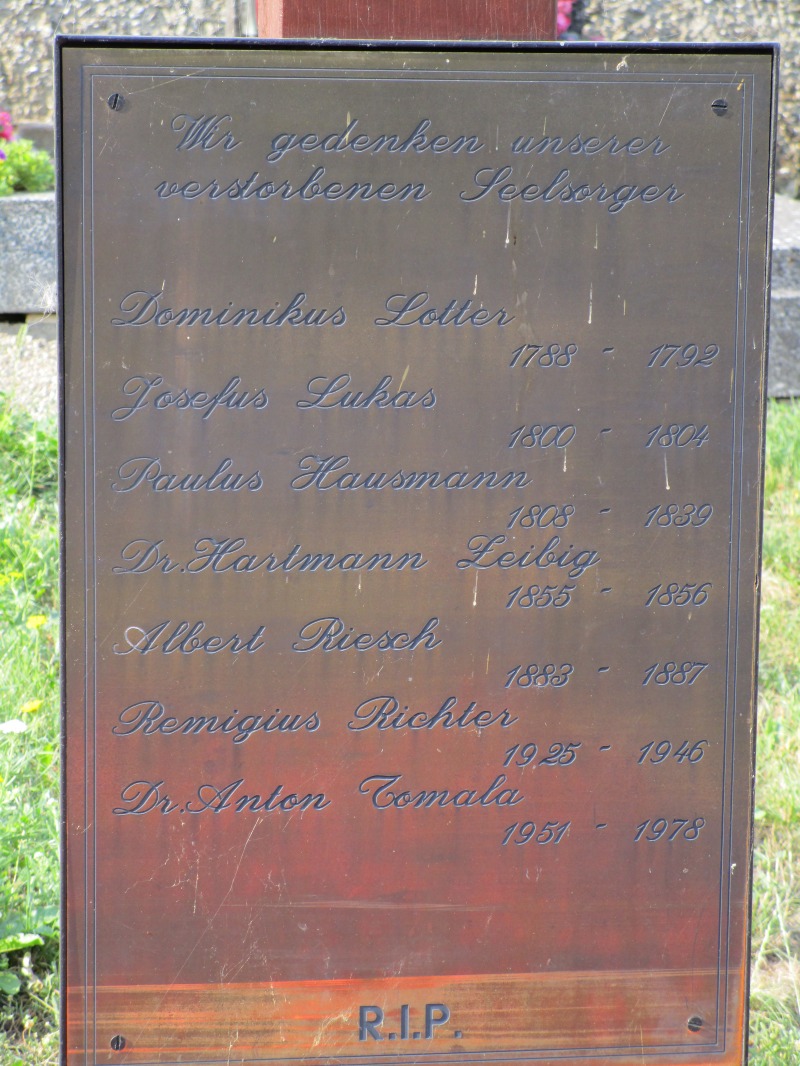 Wir gedenken unserer
verstorbenen Seelsorger
Dominikus Lotter
1788 - 1792
Josefus Lukas
1800 - 1804
Paulus Hausmann
1808 - 1839
Dr. Hartmann Zeibig
1855 - 1856
Albert Riesch
1883 - 1887
Remigius Richter
1925 - 1946
Dr. Anton Tomala
1951 - 1978
R.I.P.